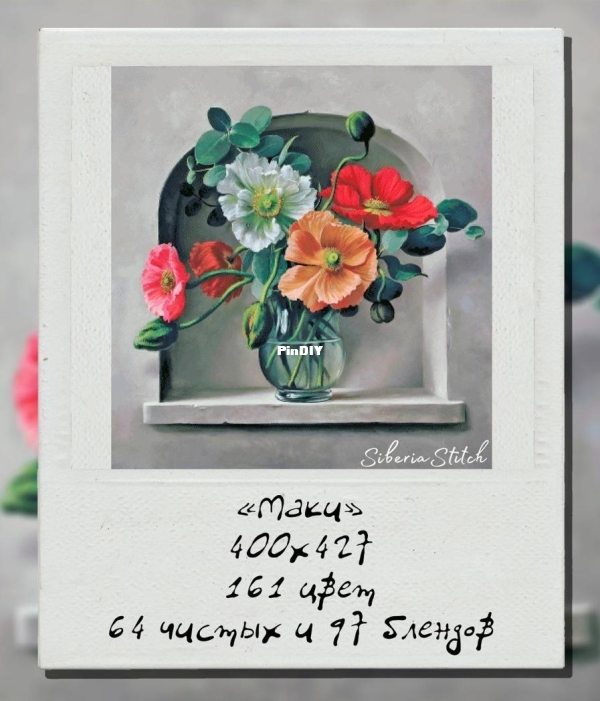 PinDIY
Siberia Stitch
«Маки»
400x427
161 цвет
64 чистых и 97 блендов